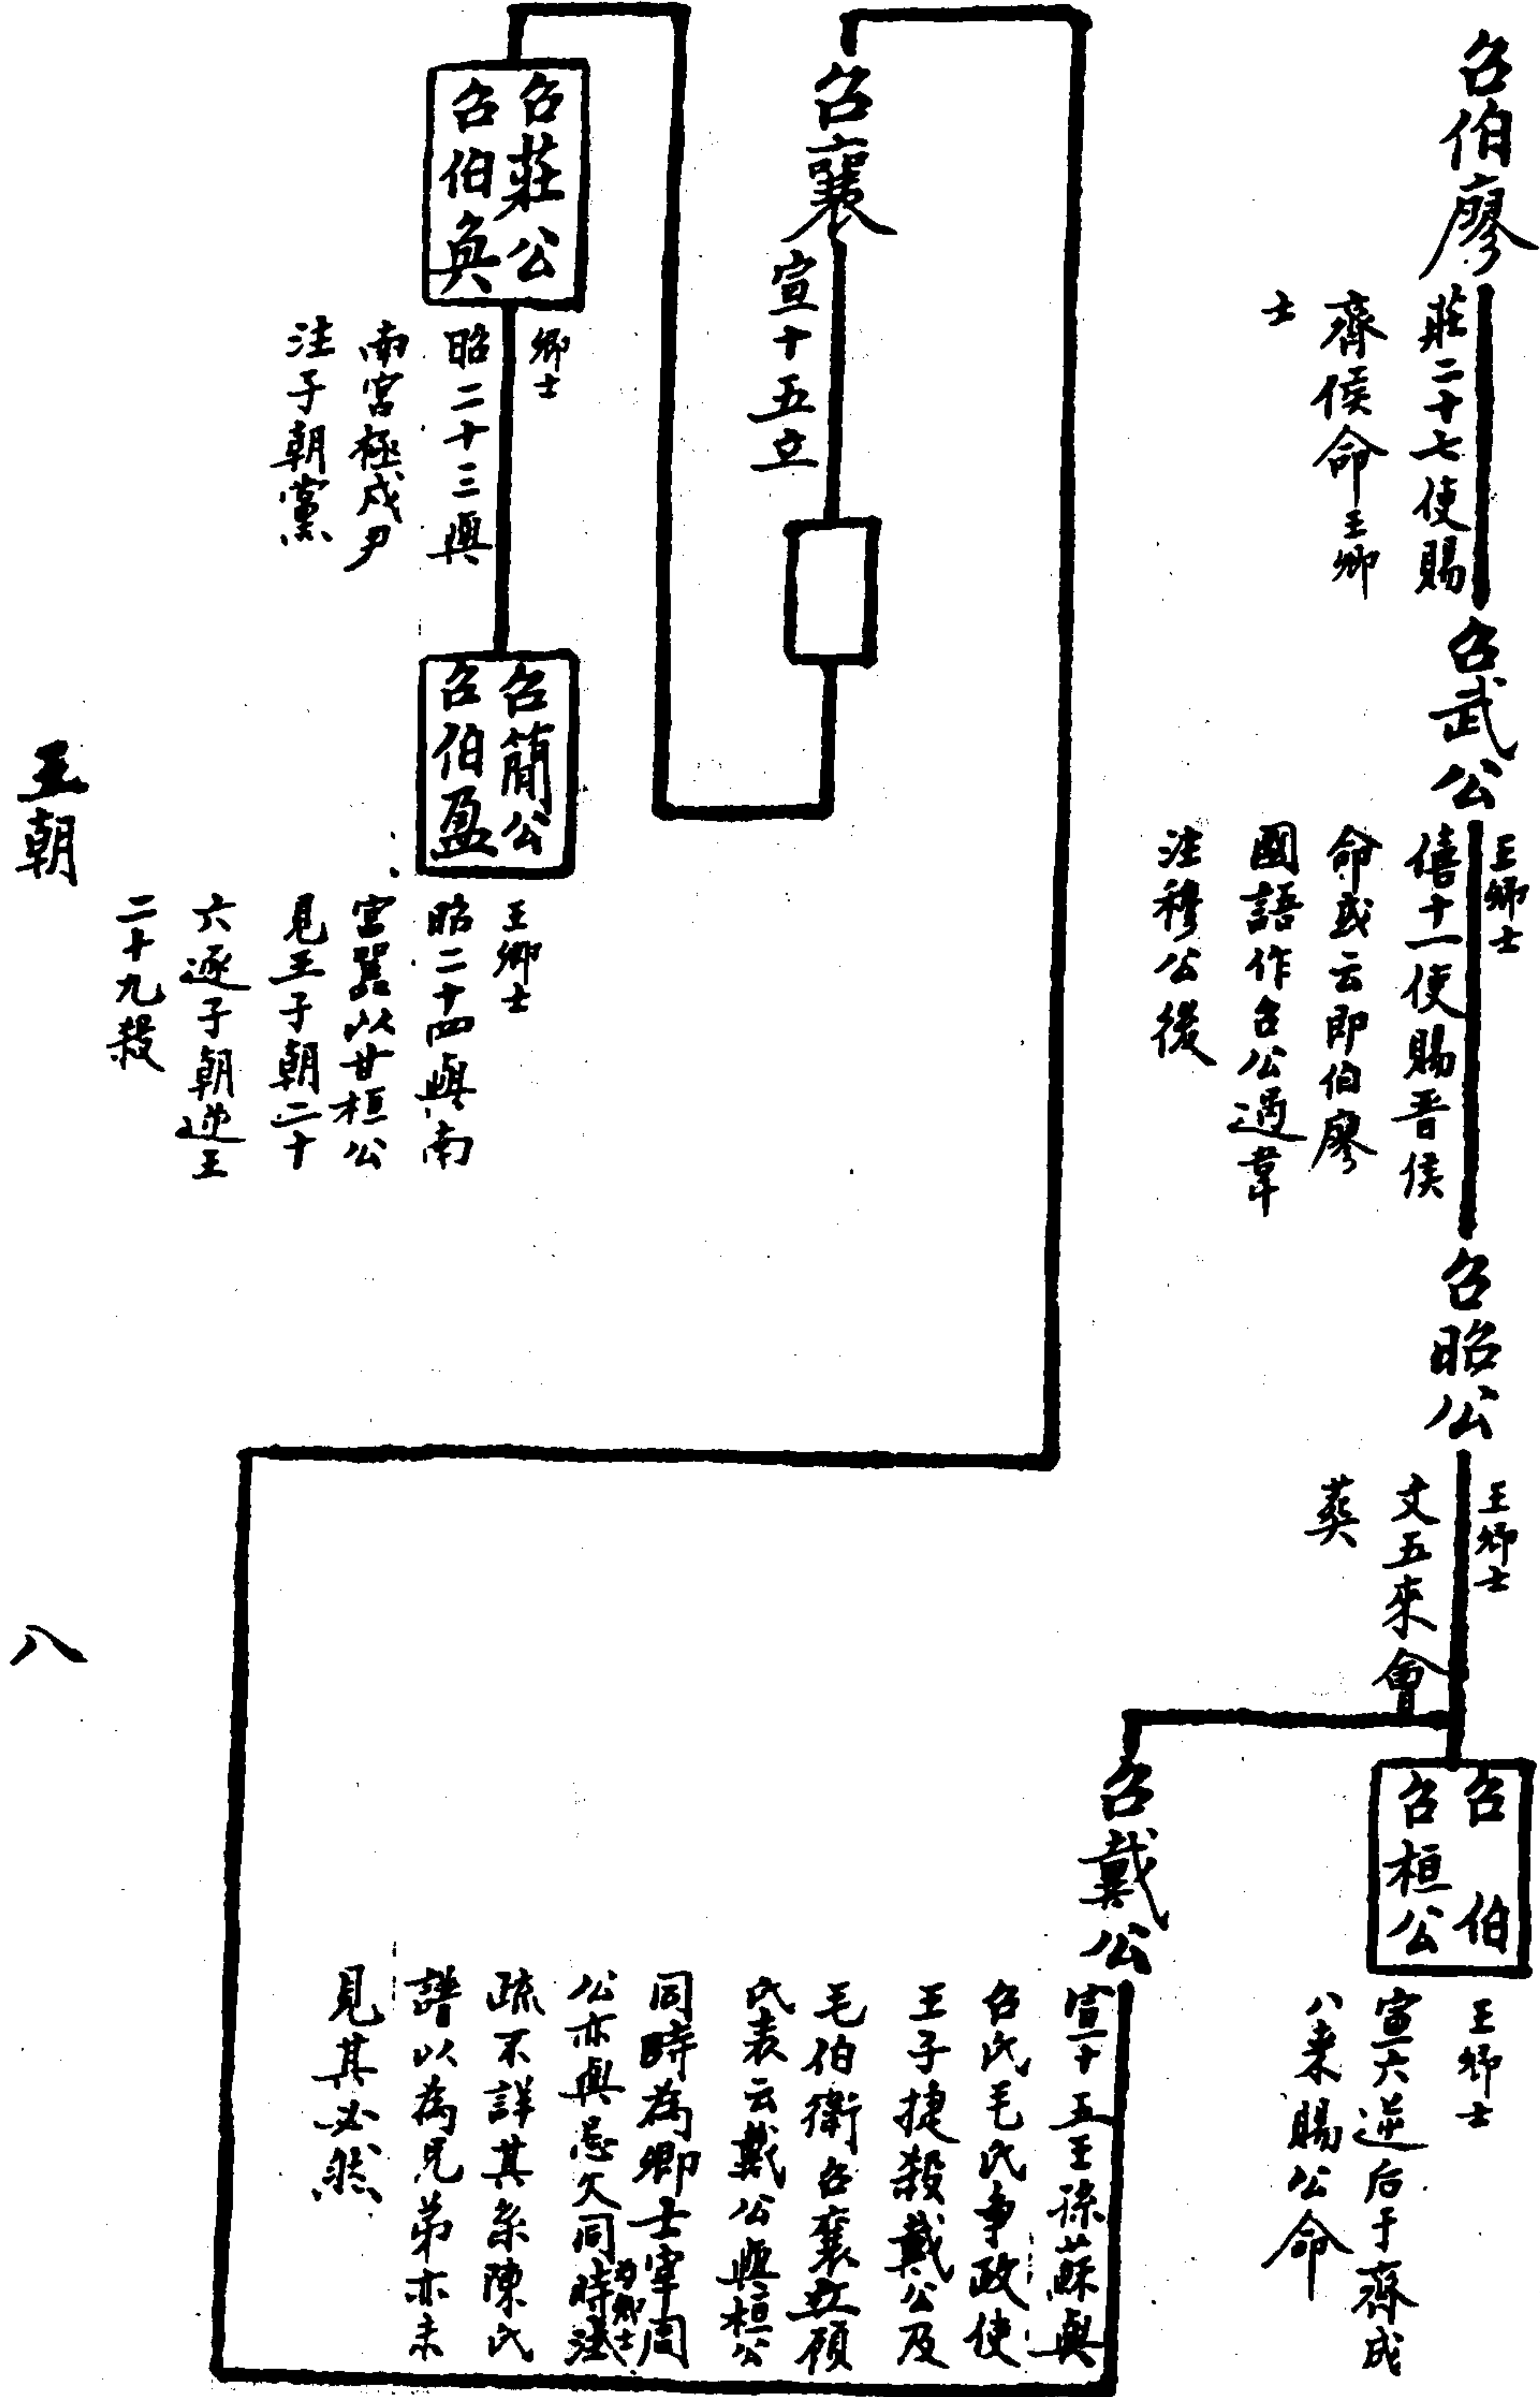 召伯廖
莊二十七使賜
齊侯命王卿
士
召武公
王卿士
僖十一使賜晋侯
命或云即伯廖
國語作召公過韋
注穆公後
召昭公
王卿士
文五來會
葬
召伯
召桓公
王卿士
宣六逆后于齊成
八来賜公命
召戴公
宣十五王孫蘇與
召氏毛氏争政使
王子捷殺戴公及
毛伯衛召襄立顧
氏表云戴公與桓公
同時為卿士宰周
公亦與忌父同時為卿士注
疏不詳其系陳氏
譜以為兄弟亦未
見其必然
召襄
宣十五立
召莊公
召伯奐
卿士
昭二十三與
南宮極戍尹
注子朝黨
召簡公
召伯盈
王卿士
昭二十四與南
宮嚚以甘桓公
見王子朝二十
六逐子朝逆王
二十九殺
王朝
八